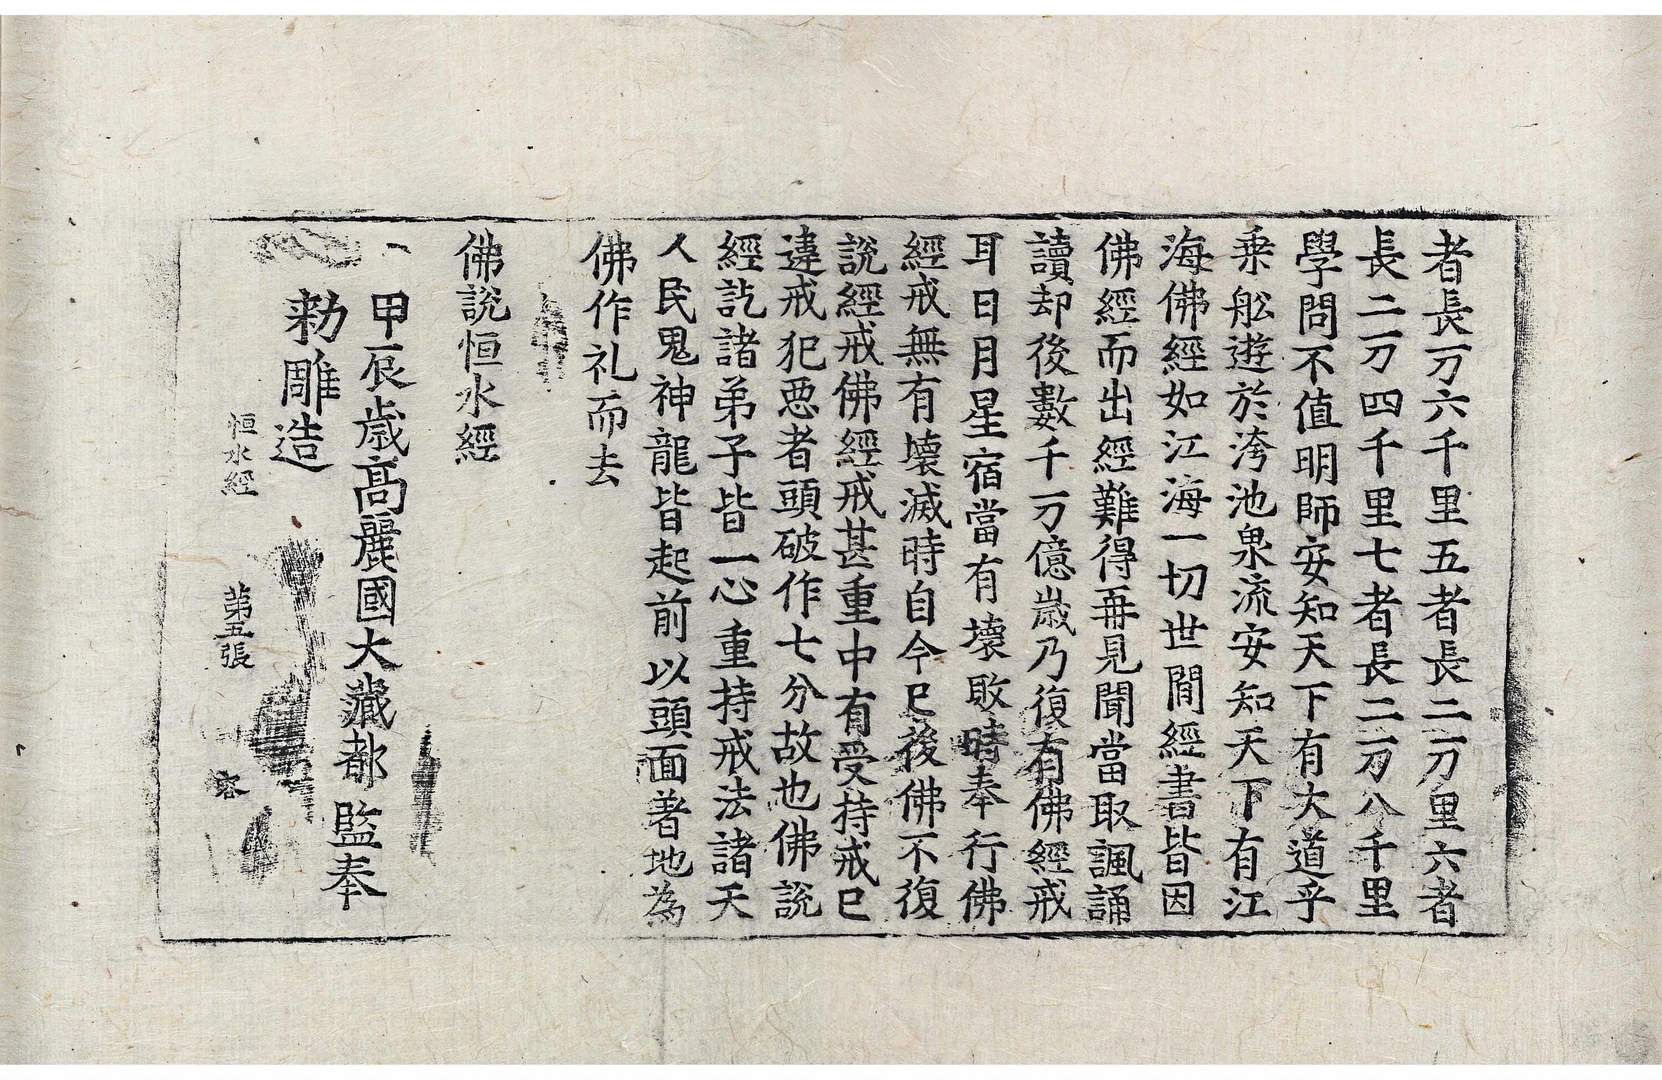 者長一万六千里五者長二万里六者
長二万四千里七者長二万八千里
學問不值明師安知天下有大道乎
乗舩遊於洿池泉流安知天下有江
海佛經如江海一切世間經書皆因
佛經而出經難得再見聞當取諷誦
讀却後數千万億歲乃復有佛經戒
耳日月星宿當有壞敗時奉行佛
經戒無有壞滅時自今已後佛不復
說經戒佛經戒甚重中有受持戒已
違戒犯惡者頭破作七分故也佛說
經訖諸弟子皆一心重持戒法諸天
人民鬼神龍皆起前以頭面著地為
佛作礼而去
佛說恒水經
甲辰歲高麗國大藏都監奉
勑雕造
恒水經 第五張 容